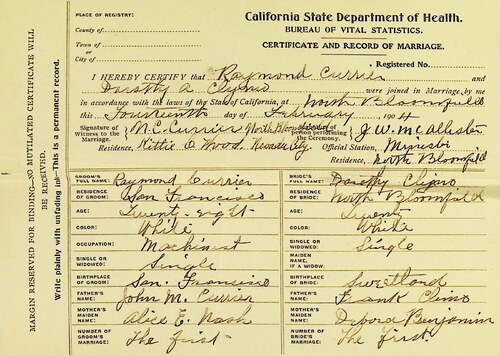 California State Department of Health.
BUREAU OF VITAL STATISTICS.
CERTIFICATE AND RECORD OF MARRIAGE.
PLACE OF REGISTRY:
County of
Town of
or
City of
Registered No.
I HEREBY CERTIFY that Raymond Currier and
Dorothy A were joined in Marriage by me
in accordance with the laws of the State of California, at North Bloomfield
this Fourteenth day of February 1904
Signature of Witness to the Marriage N.C. Currier North person performing the Ceremony. J.W. McAllister
Residence, Kittie O Wood, Official Station,
Residence, North Bloomfield
MARGIN RESERVED FOR BINDING—NO MUTILATED CERTIFICATE WILL BE RECEIVED.
Write plainly with unfading ink—This is a permanent record.
GROOM'S FULL NAME: Raymond Currier
RESIDENCE OF GROOM: San Francisco
AGE: Twenty-eight
COLOR: White
OCCUPATION: Machinist
SINGLE OR WIDOWED: Single
BIRTHPLACE OF GROOM: San Francisco
FATHER'S NAME: John M. Currier
MOTHER'S MAIDEN NAME: Alice E. Nash
NUMBER OF GROOM'S MARRIAGE: The first
BRIDE'S FULL NAME: Dorothy
RESIDENCE OF BRIDE: North Bloomfield
AGE: Twenty
COLOR: White
SINGLE OR WIDOWED: Single
MAIDEN NAME, IF A WIDOW:
BIRTHPLACE OF BRIDE: Sweetland
FATHER'S NAME: Frank
MOTHER'S MAIDEN NAME: Benjamin
NUMBER OF BRIDE'S MARRIAGE: The first